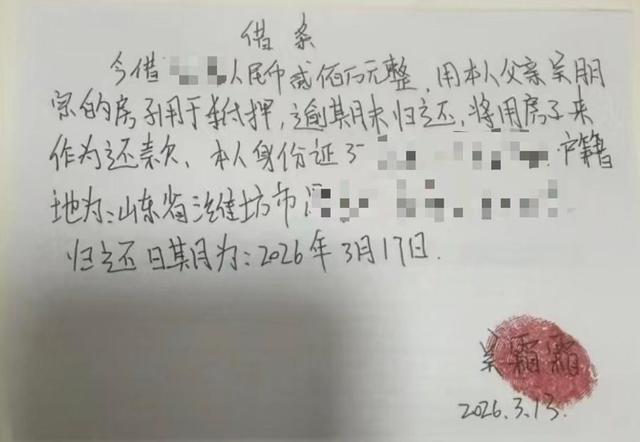 借条
今借 人民币贰佰万元整,用本人父亲吴朋
宗的房子用于抵押,逾期未归还,将用房子来
作为还款、本人身份证3 户籍
地为:山东省潍坊市
归还日期为:2026年3月17日.
吴霜霜
2026.3.13